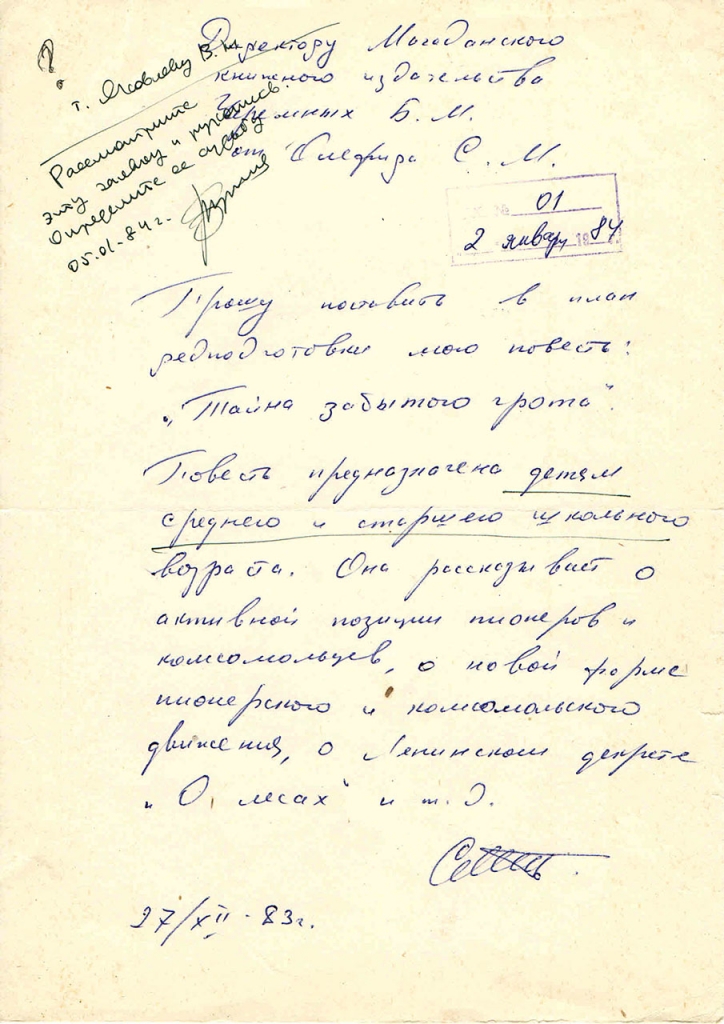 ?
т. Яковлеву В.
Рассмотрите
эту заявку и рукопись.
Определите ее судьбу
05.01-84г.
Директору Магаданского
книжного издательства
Черемных Б. М.
от С. М.
01
2 январ 1984
Прошу поставить в план
редподготовки мою повесть:
„Тайна забытого грота".
Повесть предназначена детям
среднего и старшего школьного
возраста. Она рассказывает о
активной позиции пионеров и
комсомольцев, о новой форме
пионерского и комсомольского
движения, о Ленинском декрете
„О лесах" и т. д.
27/XII-83г.